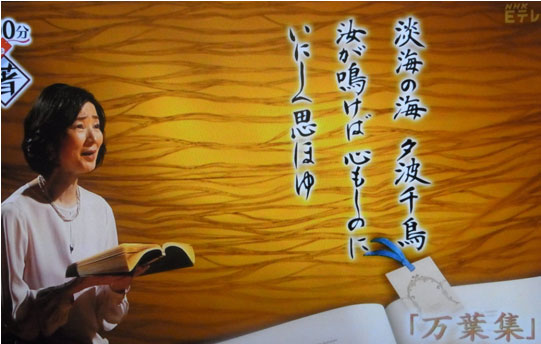 NHK
Eテレ
0分
淡海の海 夕波千鳥
汝が鳴けば 心もしのに
いにしへ思ほゆ
「万葉集」